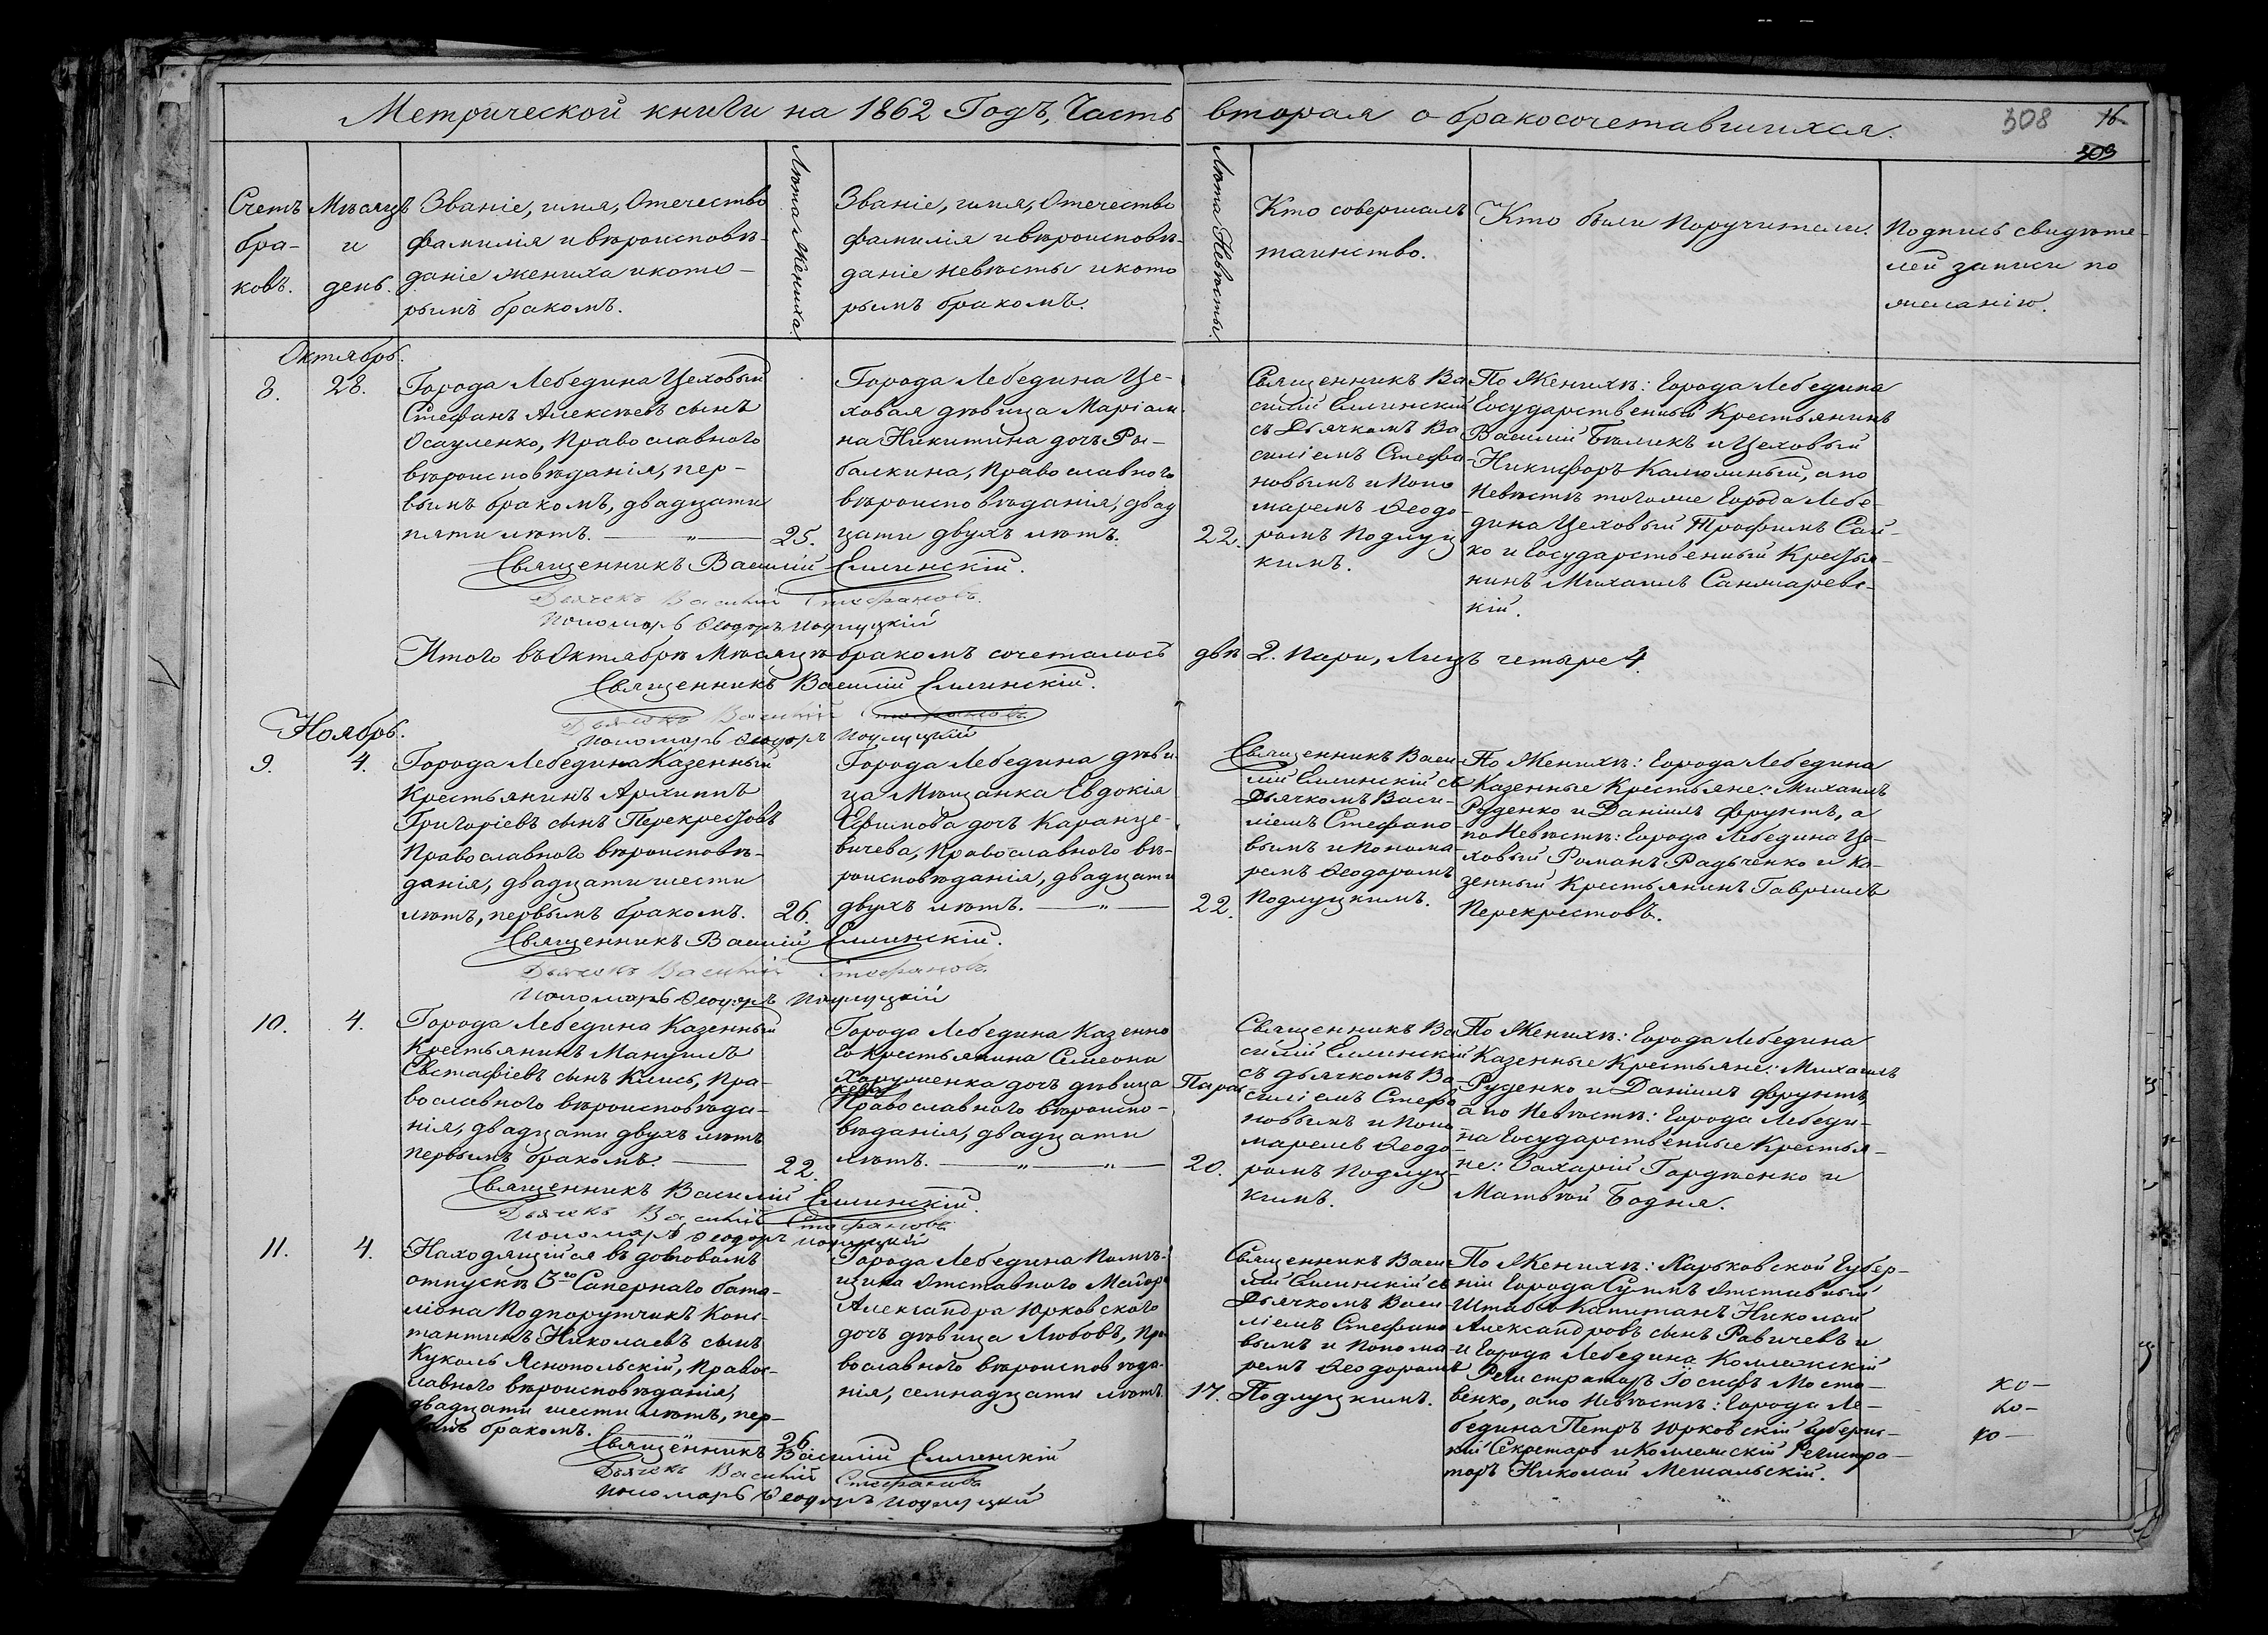 Метрической книги на 1862 Годъ, Часть вторая о бракосочетавшихся.
308
16
309
Счетъ бра-
ковъ.
Мѣсяцъ
и
день.
Званіе, имя, Отечество
фамилія и вѣроисповѣ-
даніе жениха и кото-
рымъ бракомъ.
Лѣта Жениха.
Званіе, имя, Отечество
фамилія и вѣроисповѣ-
даніе невѣсты и кото
рымъ бракомъ.
Лѣта Невѣсты.
Кто совершалъ
таинство.
Кто были Поручители.
Подпись свидѣте-
лей записи по
желанію.
Октябрь.
8.
28.
Города Лебедина Цеховый
Стефанъ Алексѣевъ сынъ
Осауленко, Православного
вѣроисповѣданія, пер-
вымъ бракомъ, двадцати
пяти лѣтъ. — „ —
25.
Города Лебедина Це-
ховая дѣвица Маріам-
на Никитина дочь Ры-
балкина, Православного
вѣроисповѣданія, двад
цати двухъ лѣтъ.
22.
Священникъ Ва
силій Еллинскій
съ Дьячкомъ Ва
силіемъ Стефа-
новымъ и Поно
маремъ Ѳеодо-
ромъ Подлуц
кимъ.
По Женихѣ: Города Лебедина
Государственный Крестьянинъ
Василій Бѣликъ и Цеховый
Никифоръ Калюжный, а по
Невѣстѣ тогоже Города Лебе-
дина Цеховый Трофимъ Сай-
ко и Государственный Крестья-
нинъ Михаилъ Санжаревс-
кій.
Священникъ Василій Еллинскій.
Дьячекъ Василій Стефановъ.
Пономарь Ѳеодоръ Подлуцкій
Итого въ Октябрѣ Мѣсяцѣ бракомъ сочеталось двѣ 2. Пари, Лицъ четыре 4.
Священникъ Василій Еллинскій.
Дьячекъ Василій Стефановъ
Пономарь Ѳеодоръ Подлуцкій
Ноябрь.
9.
4.
Города Лебедина Казенный
Крестьянинъ Архиппъ
Григоріевъ сынъ Перекрестовъ
Православного вѣроисповѣ-
данія, двадцати шести
лѣтъ, первымъ бракомъ.
26.
Города Лебедина дѣви
ца Мѣщанка Евдокія
Ефимова дочь Каранце-
вичева, Православного вѣ-
роисповѣданія, двадцати
двухъ лѣтъ. — „ —
22.
Священникъ Васи-
лій Еллинскій съ
Дьячкомъ Васи-
ліемъ Стефано-
вымъ и Понома-
ремъ Ѳеодоромъ
Подлуцкимъ.
По Женихѣ: Города Лебедина
Казенные Крестьяне: Михаилъ
Руденко и Даніилъ Фрунтъ, а
по Невѣстѣ: Города Лебедина Це-
ховый Романъ Радченко и Ка-
зенный Крестьянинъ Гавріилъ
Перекрестовъ.
Священникъ Василій Еллинскій.
Дьячекъ Василій Стефановъ
Пономарь Ѳеодоръ Подлуцкій
10.
4.
Города Лебедина Казенный
Крестьянинъ Мануилъ
Евстафіевъ сынъ Пра-
вославного вѣроисповѣда-
нія, двадцати двухъ лѣтъ
первымъ бракомъ. —
22.
Города Лебедина Казенно
го Крестьянина Симеона
дочь дѣвица Парас
кева
Православного вѣроиспо-
вѣданія, двадцати
лѣтъ. — „ — „ —
20.
Священникъ Ва
силій Еллинскій
съ дьячкомъ Ва-
силіемъ Стефа
новымъ и Поно
маремъ Ѳеодо-
ромъ Подлуц-
кимъ.
По Женихѣ: Города Лебедина
Казенные Крестьяне: Михаилъ
Руденко и Даніилъ Фрунтъ,
а по Невѣстѣ: Города Лебеди-
на Государственные Крестья-
не: Захарій Гордѣенко и
Матвѣй Бодня.
Священникъ Василій Еллинскій.
Дьячекъ Василій Стефановъ
Пономарь Ѳеодоръ Подлуцкій
11.
4.
Находящійся въ долговомъ
отпускѣ 3го Сапернаго бата-
ліона Подпорутчикъ Конс-
тантинъ Николаевъ сынъ
Куколь Яснопольскій, Правос-
лавного вѣроисповѣданія,
двадцати шести лѣтъ, пер-
вымъ бракомъ.
26
Города Лебедина Помѣ-
щика Отставного Майора
Александра Юрковского
дочь дѣвица Любовь, Пра-
вославного вѣроисповѣда-
нія, семнадцати лѣтъ.
17.
Священникъ Васи-
лій Еллинскій съ
Дьячкомъ Васи-
ліемъ Стефано
вымъ и Понома-
ремъ Ѳеодоромъ
Подлуцкимъ.
По Женихѣ: Харьковской Губер-
ніи Города Сумъ Отставный
Штабсъ Капитанъ Николай
Александровъ сынъ Равичевъ и
и Города Лебедина Коллежскій
Регистраторъ Іосифъ Моста-
венко, а по Невѣстѣ: Города Ле-
бедина Петръ Юрковскій Губернс-
кій Секретарь и Коллежскій Регистра-
торъ Николай Мешальскій.
ко—
ко—
ко—
Священникъ Василій Еллинскій
Дьячекъ Василій Стефановъ
Пономарь Ѳеодоръ Подлуцкій